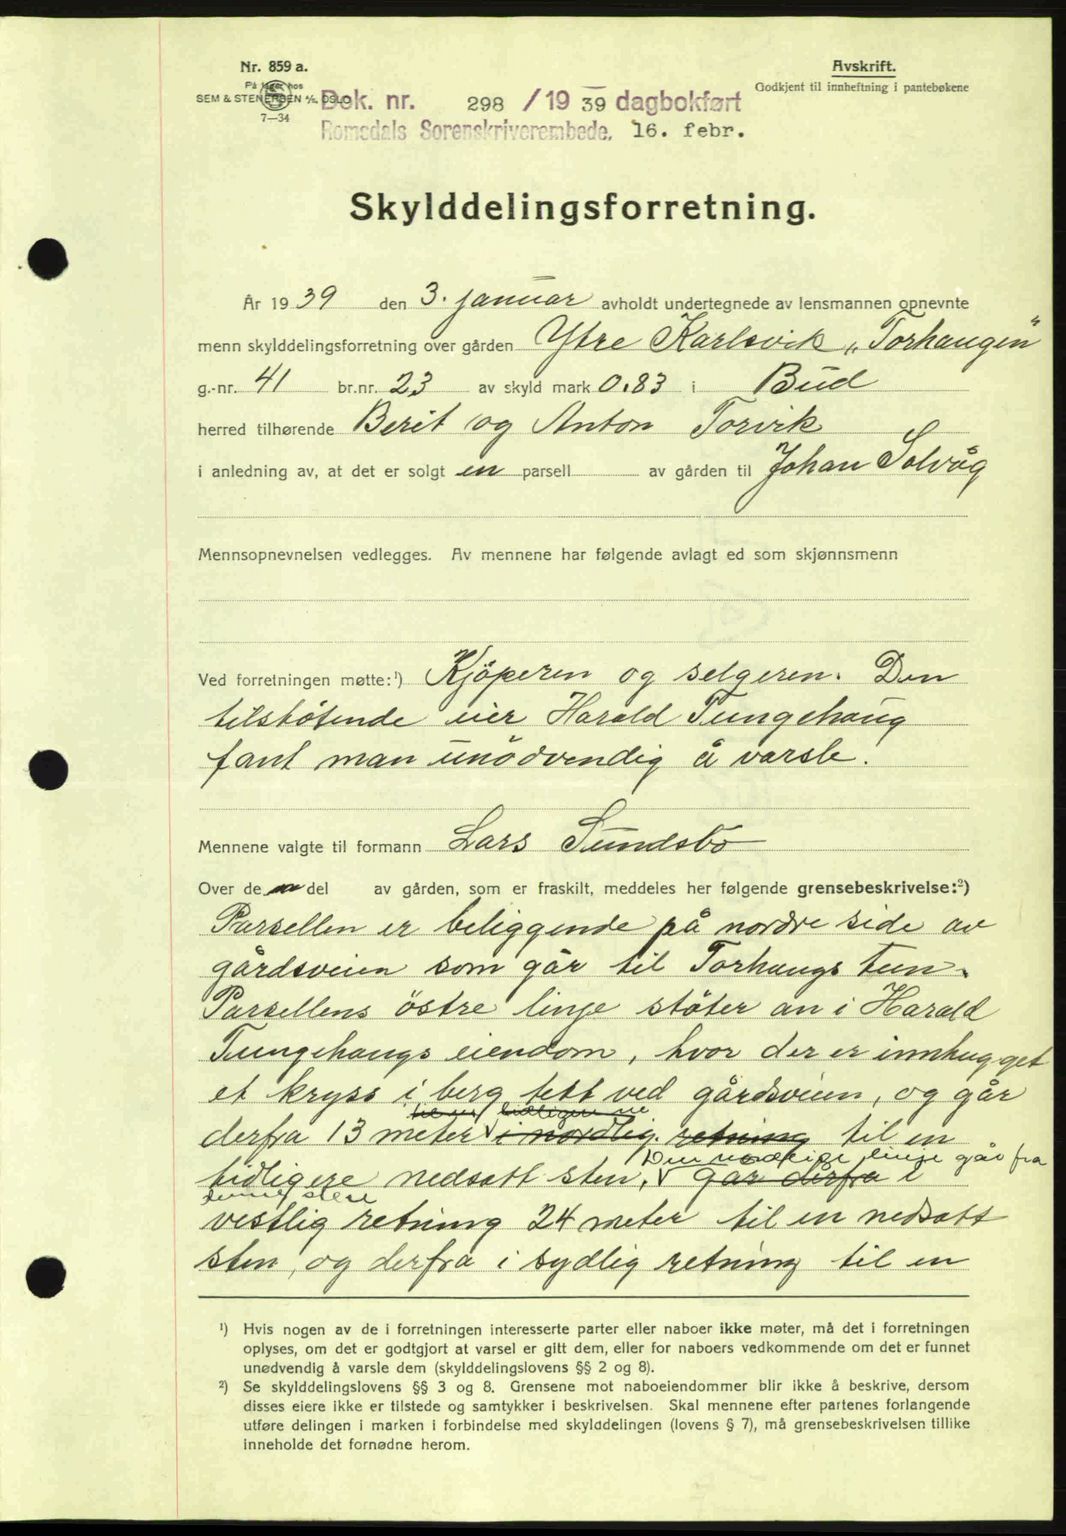 Nr. 859 a.
På lager hos
SEM & STENERSEN A/S, OSLO
7—34
Avskrift.
Godkjent til innheftning i pantebøkene
Dok. nr. 298 / 19 39 dagbokført
Romsdals Sorenskriverembede, 16. febr.
Skylddelingsforretning.
År 19 39 den 3. januar avholdt undertegnede av lensmannen opnevnte
menn skylddelingsforretning over gården Ytre Karlsvik „Torhaugen“
g.-nr. 41 br.nr. 23 av skyld mark 0.83 i Bud
herred tilhørende Berit og Anton Torvik
i anledning av, at det er solgt en parsell av gården til Johan Solvåg
Mennsopnevnelsen vedlegges. Av mennene har følgende avlagt ed som skjønnsmenn
Ved forretningen møtte:¹) Kjöperen og selgeren. Den
tilstötende eier Harald Tungehaug
fant man unödvendig å varsle.
Mennene valgte til formann Lars Sundsbö
Over de n del av gården, som er fraskilt, meddeles her følgende grensebeskrivelse:²)
Parsellen er beliggende på nordre side av
gårdsveien som går til Torhaugs tun.
Parsellens östre linje stöter an i Harald
Tungehaugs eiendom, hvor der er innhugget
et kryss i berg tett ved gårdsveien, og går
derfra 13 meter i nordlig retning til en
Den nordlige linje går fra
tidligere nedsatt sten, går derfra i
denne sten
vestlig retning 24 meter til en nedsatt
sten, og derfra i sydlig retning til en
¹) Hvis nogen av de i forretningen interesserte parter eller naboer ikke møter, må det i forretningen
oplyses, om det er godtgjort at varsel er gitt dem, eller for naboers vedkommende om det er funnet
unødvendig å varsle dem (skylddelingslovens §§ 2 og 8).
²) Se skylddelingslovens §§ 3 og 8. Grensene mot naboeiendommer blir ikke å beskrive, dersom
disses eiere ikke er tilstede og samtykker i beskrivelsen. Skal mennene efter partenes forlangende
utføre delingen i marken i forbindelse med skylddelingen (lovens § 7), må grensebeskrivelsen tillike
inneholde det fornødne herom.